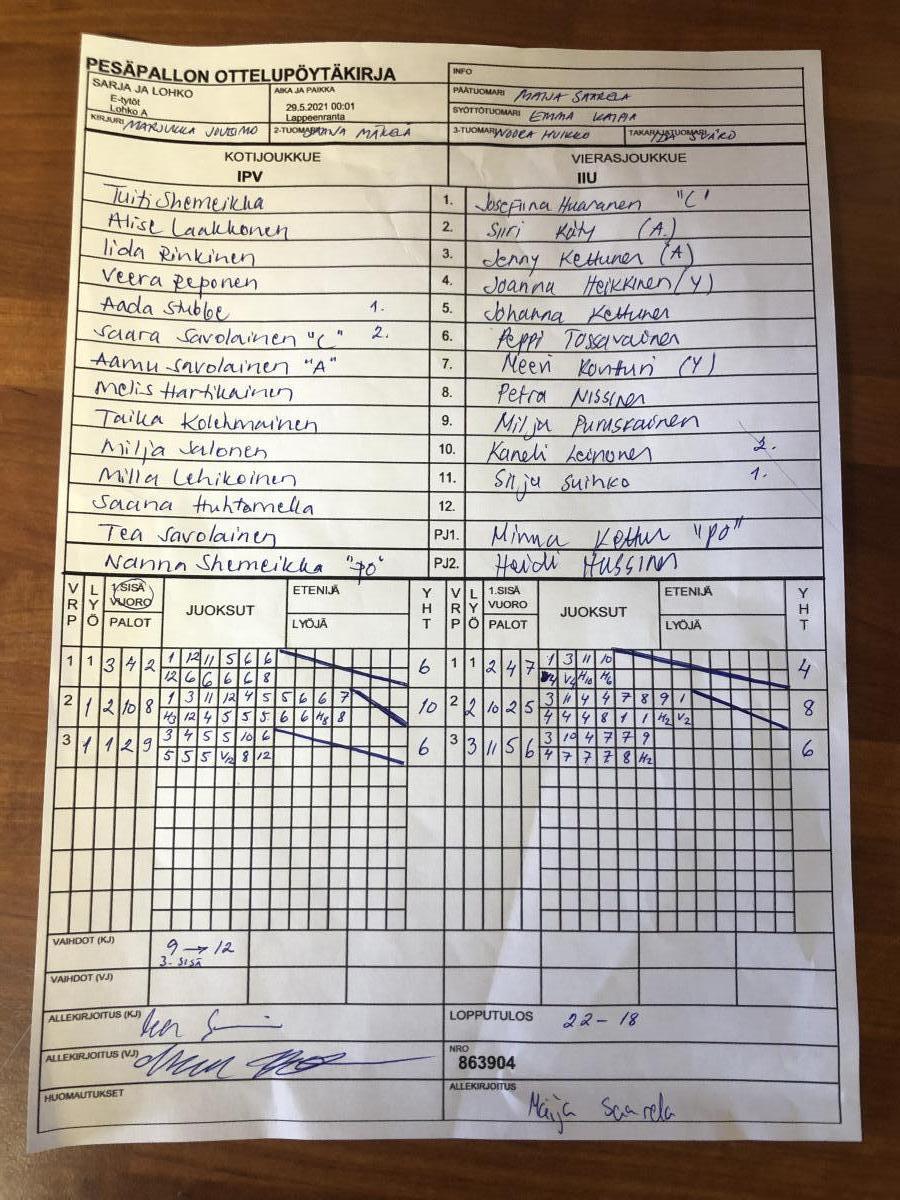 PESÄPALLON OTTELUPÖYTÄKIRJA
INFO
SARJA JA LOHKO
E-tytöt
Lohko A
AIKA JA PAIKKA
29.5.2021 00:01
Lappeenranta
PÄÄTUOMARI MAIJA SAARELA
SYÖTTÖTUOMARI EMMA
KIRJURI MARJUKKA JOUSIMO
2-TUOMARI MÄKELÄ
3-TUOMARI NOORA HUIKKO
TAKARAJATUOMARI
KOTIJOUKKUE
IPV
VIERASJOUKKUE
IIU
Tuiti Shemeikka 1. Josefiina Huaranen "C"
Alise Laakkonen 2. Siiri Käty (A.)
Iida Rinkinen 3. Jenny Kettunen (A)
Veera Reponen 4. Joanna Heikkinen (Y)
Aada Stubbe 1. 5. Johanna Kettunen
Saara Savolainen "C" 2. 6. Peppi Tossavainen
Aamu Savolainen "A" 7. Meeri Konturi (Y)
Melis Hartikainen 8. Petra Nissinen
Taika Kolehmainen 9. Milja Puruskainen
Milja Jalonen 10. Kaneli Leinonen 2.
Milla Lehikoinen 11. Silja Suihko 1.
Saana Huhtamella 12.
Tea Savolainen PJ1. Minna "PO"
Nanna Shemeikka "PO" PJ2. Heidi Hussinen
VRP LYÖ 1.SISÄ VUORO PALOT JUOKSUT ETENIJÄ LYÖJÄ YHT VRP LYÖ 1.SISÄ VUORO PALOT JUOKSUT ETENIJÄ LYÖJÄ YHT
1 1 3 4 2 1 12 11 5 6 6 6 1 1 2 4 7 1 3 11 10 4
12 6 6 6 6 8 V4 V4 H10 H6
2 1 2 10 8 1 3 11 12 4 5 5 6 6 7 10 2 2 10 2 5 3 11 4 4 7 8 9 1 8
H3 12 4 5 5 5 6 6 H8 8 4 4 4 8 1 1 H2 V2
3 1 1 2 9 3 4 5 5 10 6 6 3 3 11 5 6 3 10 4 7 7 9 6
5 5 5 V12 8 12 4 7 7 7 8 H2
VAIHDOT (KJ) 9 → 12
3. SISÄ
VAIHDOT (VJ)
ALLEKIRJOITUS (KJ)
LOPPUTULOS 22-18
ALLEKIRJOITUS (VJ)
NRO
863904
HUOMAUTUKSET
ALLEKIRJOITUS
Maija Saarela